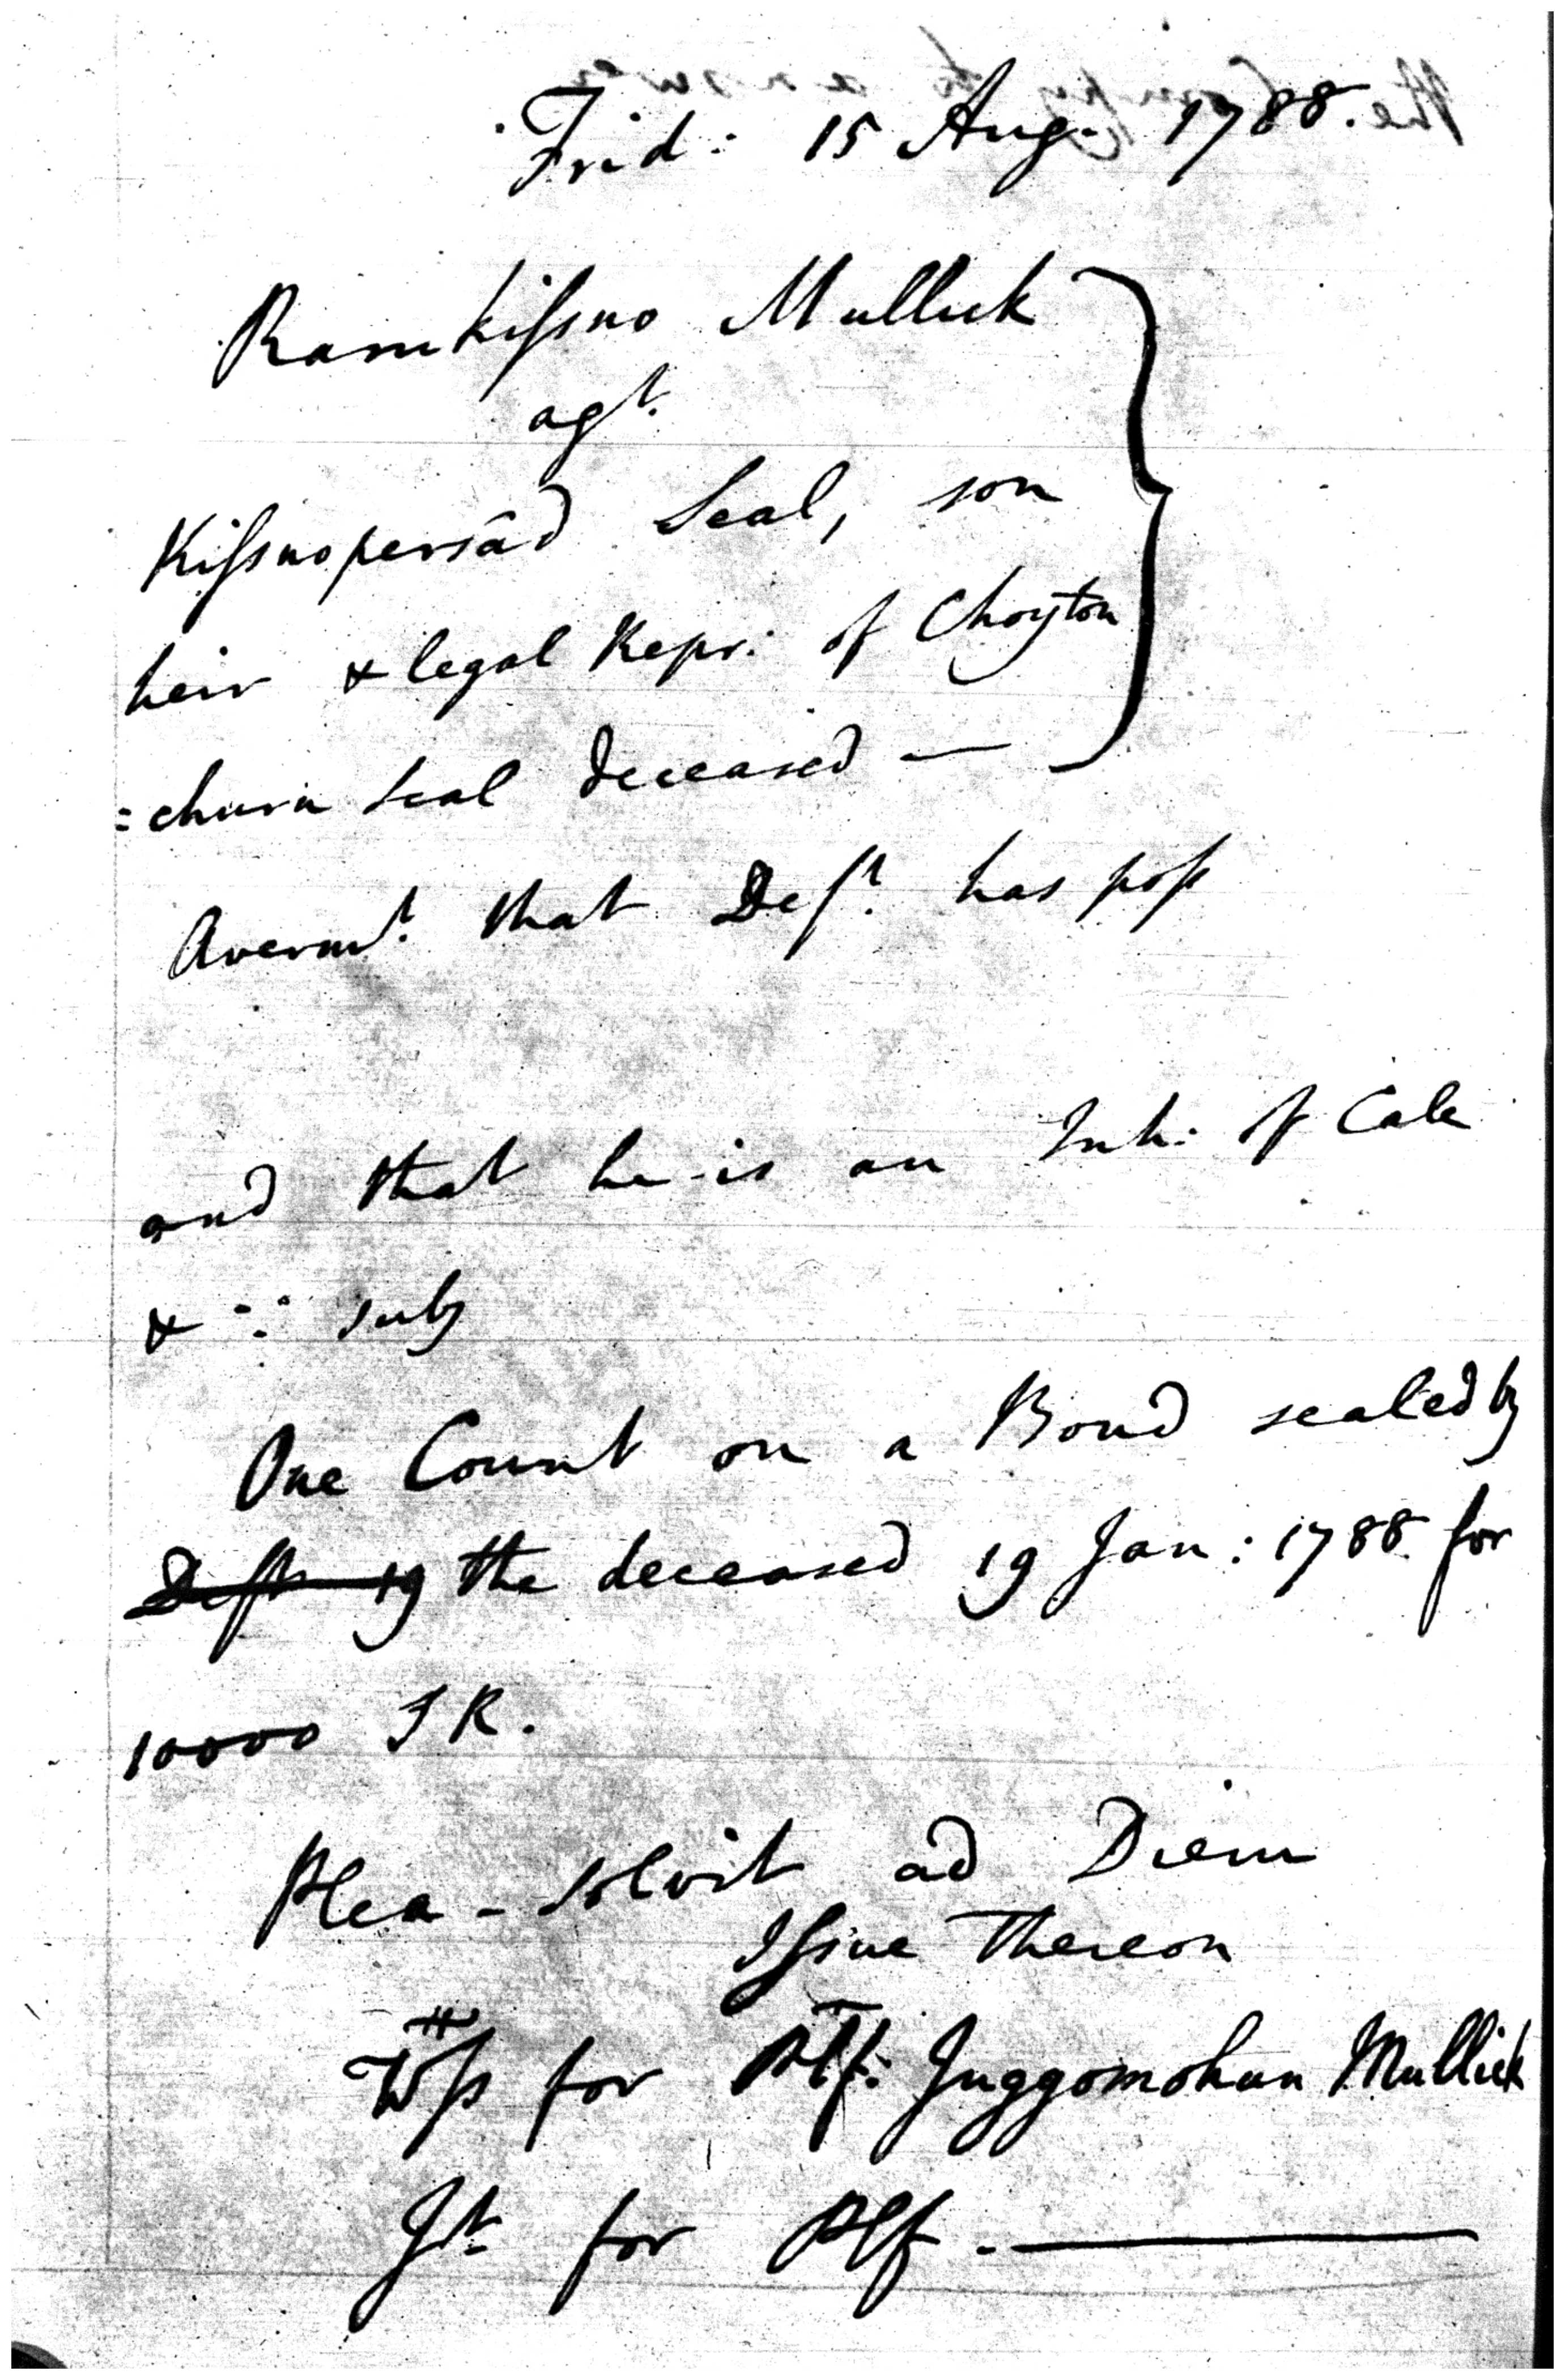 Frid: 15 Aug. 1788.
Ramkissno Mullick
agt.
Kissnopersâd Seal, son
heir & legal Repr. of Choyton
=churn Seal deceased —
Avermt. that Deft. has poss
and that he is an Inh: of Calc
& ∵ subj
One Count on a Bond sealed by
Deft 19 the deceased 19 Jan: 1788 for
10000 S R.
Plea - Solvit ad Diem
Issue thereon
Wss for Plf: Juggomohun Mullick
Jt. for Plf. —